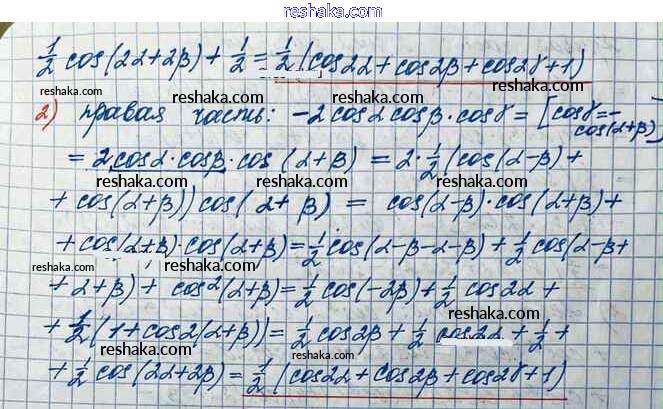 reshaka.com
1/2 cos(2α+2β) + 1/2 = 1/2 (cos2α + cos2β + cos2γ + 1)
reshaka.com
reshaka.com
reshaka.com
2) правая часть: -2 cosα cosβ · cosγ = [cosγ = -cos(α+β)]
= 2 cosα · cosβ · cos(α+β) = 2 · 1/2 (cos(α-β) +
reshaka.com
reshaka.com
reshaka.com
+ cos(α+β)) cos(α+β) = cos(α-β) · cos(α+β) +
reshaka.com
reshaka.com
+ cos(α+β) · cos(α+β) = 1/2 cos(α-β-α-β) + 1/2 cos(α-β+
reshaka.com
reshaka.com
reshaka.com
+ α+β) + cos²(α+β) = 1/2 cos(-2β) + 1/2 cos2α +
+ 1/2 (1 + cos2(α+β)) = 1/2 cos2β + 1/2 cos2α + 1/2 +
reshaka.com
reshaka.com
reshaka.com
+ 1/2 cos(2α+2β) = 1/2 (cos2α + cos2β + cos2γ + 1)
reshaka.com